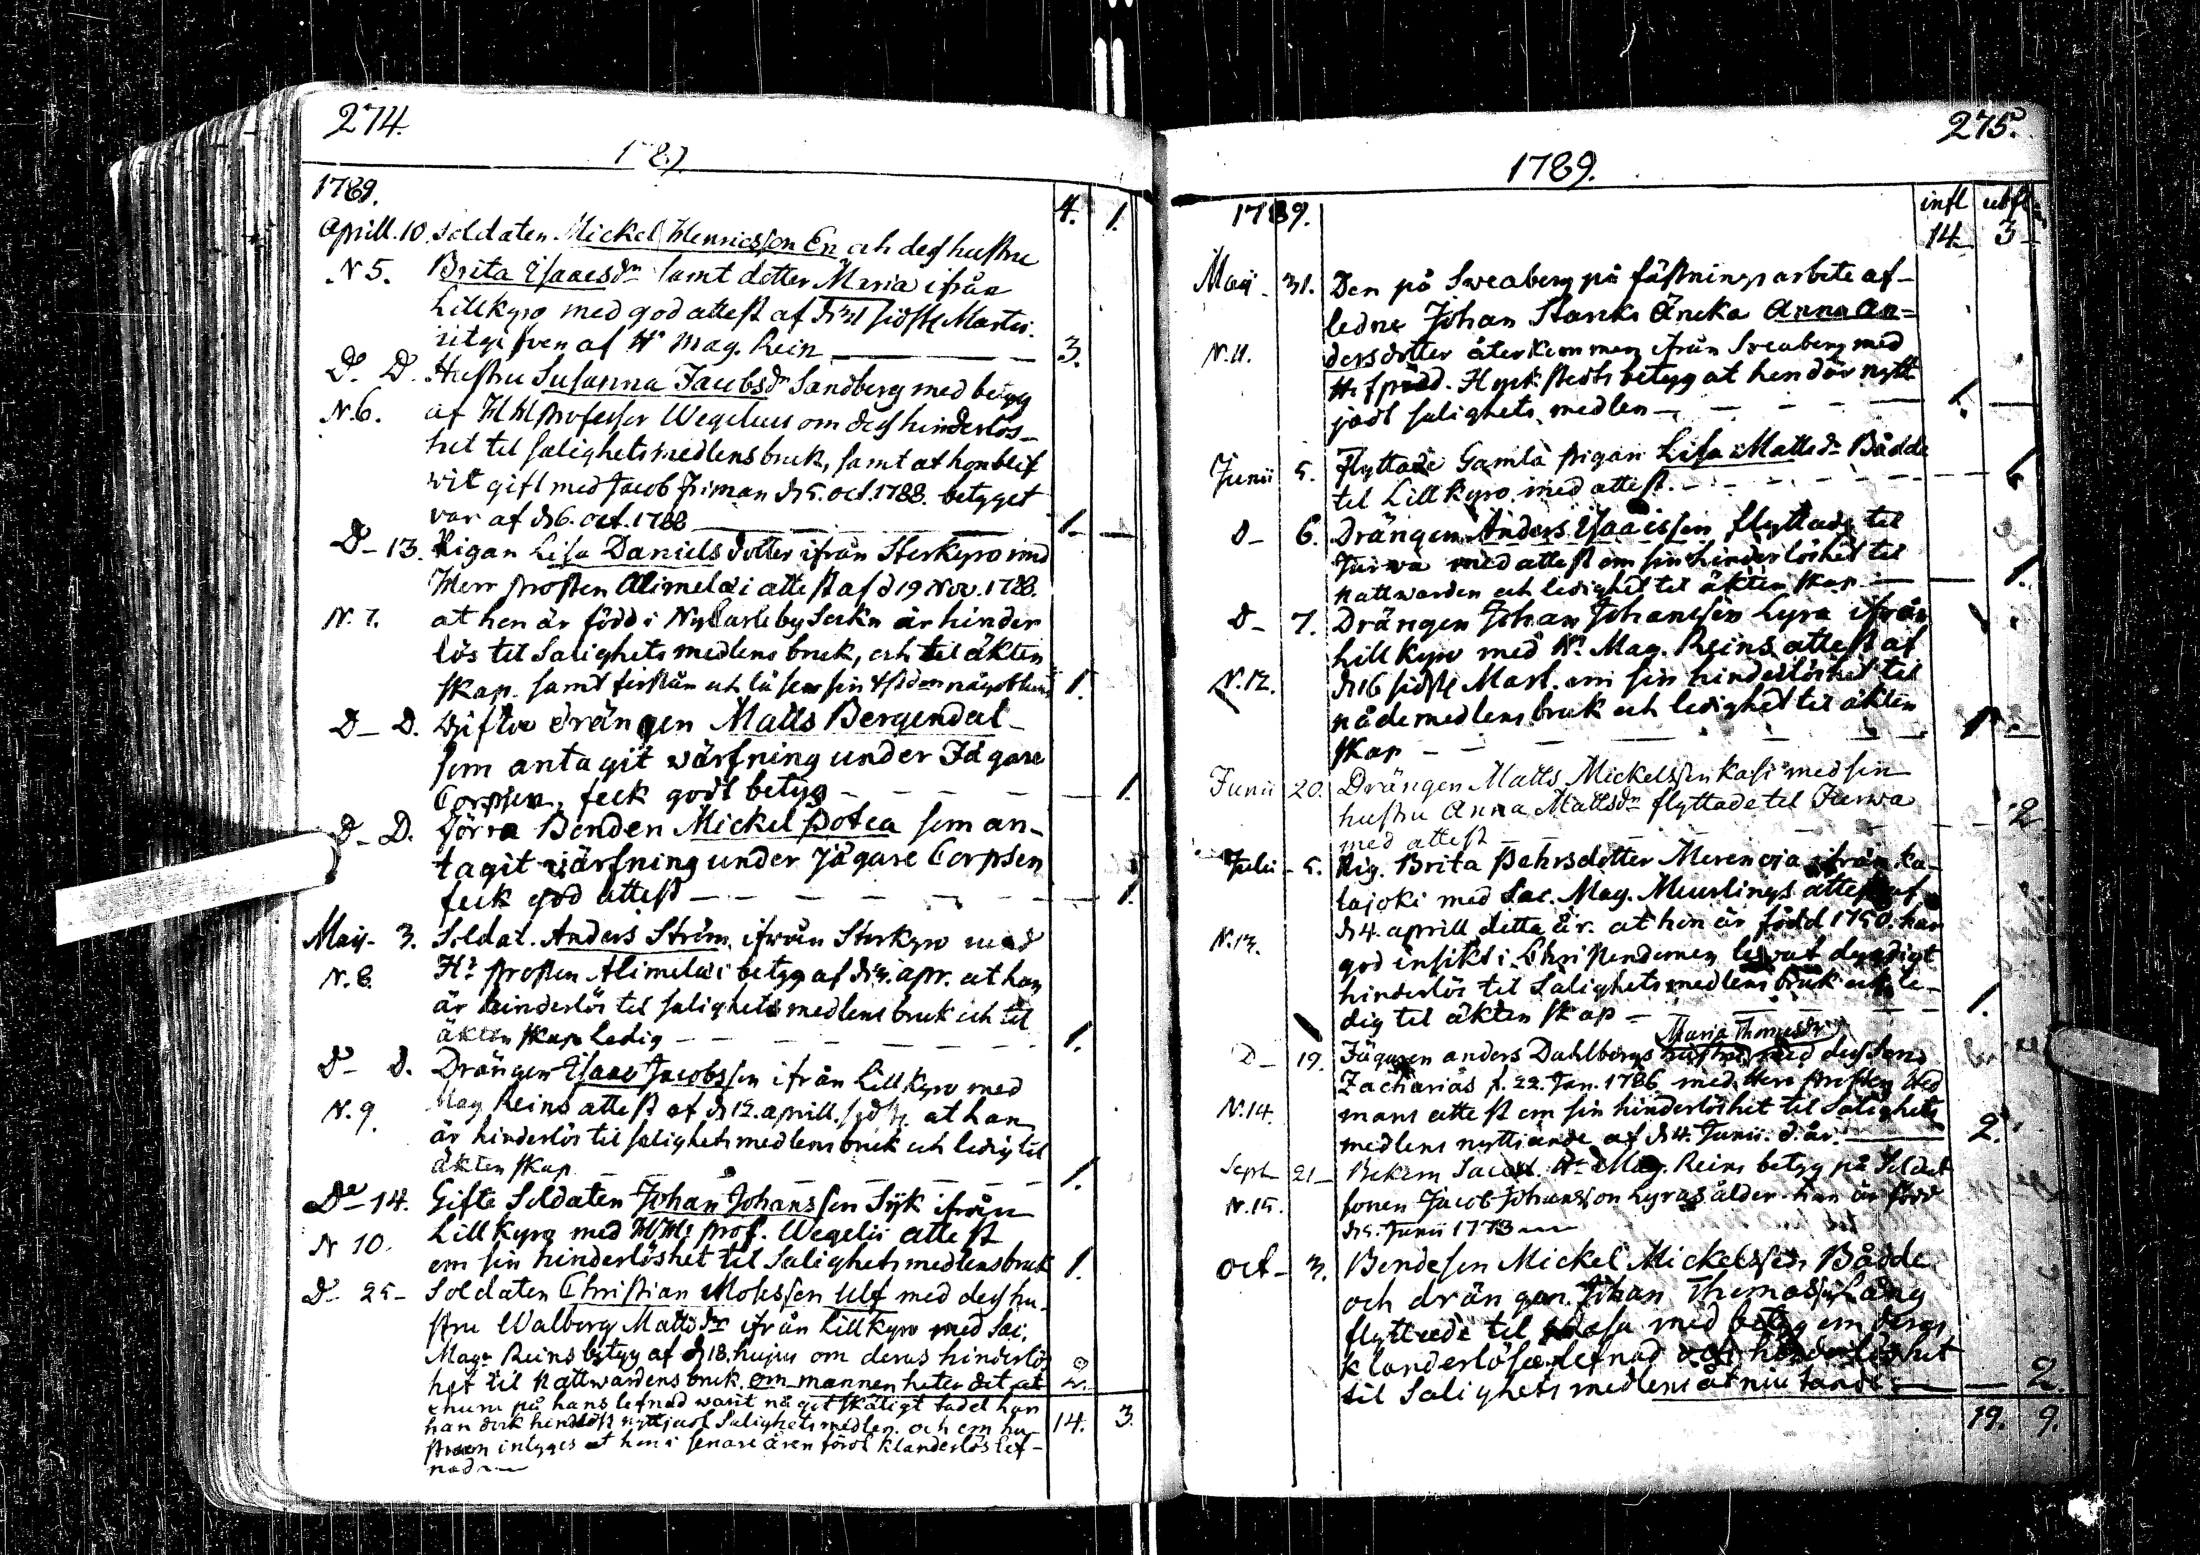 274.
1789.
1789. 4. 1.
Aprill. 10. soldaten Mickel Henricsson En och dess hustru
N 5. Brita Isaacsdr samt dotter Maria ifrån
Lillkyro med god attest af sidstl. Martii
utgifven af Hr Mag. Rein 3.
D. D. Hustru Susanna Jacobsdr Sandberg med betyg
N. 6. af Professor Wegelius om dess hinderlös-
het til salighetsmedlens bruk, samt at hon blif
vit gift med Jacob Friman d. 5. oct. 1788. betyget
var af d. 6. oct. 1788 1.
D- 13. Pigan Lisa Danielsdotter ifrån Storkyro med
Herr Prosten Alimelæi attest af d 19 Nov. 1788.
N. 7. at hon är född i NyCarleby Sokn är hinder
lös til Salighets medlens bruk, och til äkten
skap. samt 1.
D- D. Gifte drängen Matts Bergendal
som antagit värfning under Jägare
Corpsen, feck godt betyg 1.
D- D. Förra Bonden Mickel Potca som an-
tagit värfning under Jägare Corpsen
feck god attest 1.
Maij- 3. Soldat. Anders Ström ifrån Storkyro med
N. 8. Hr Prosten Alimelæi betyg af apr. at han
är hinderlös til salighets medlens bruk och til
äktenskap ledig 1.
D- D. Drängen Isaac Jacobsson ifrån Lillkyro med
N. 9. Mag Reins attest af d 12. aprill. sidstl. at han
är hinderlös til salighets medlens bruk och ledig til
äktenskap 1.
D- 14. Gifte Soldaten Johan Johansson Sijk ifrån
N 10. Lillkyro med prof. Wegelii attest
om sin hinderlöshet til Salighets medlens bruk 1.
D- 25- Soldaten Christian Mosesson Ulf med dess hu-
stru Walborg Mattsdr ifrån Lillkyro med Sac.
Mag. Reins betyg af d 18. hujus om deras hinderlös
het til Nattwardens bruk. om mannen heter det at 2.
ehuru på hans lefnad warit något skäligt tadel har
han dock nyttjat Salighetsmedlen. och om hu- 14. 3.
strun intyges at hon i senare åren fördt klanderlös lef-
nad
275.
1789.
1789. infl utfl
14. 3
Maij- 31. Den på Sveaborg på fästningsarbete af-
ledne Johan Starcks Äncka Anna An=
N. 11. dersdotter återkommen ifrån Sveaborg med
betyg at hon där nytt
jadt salighets medlen 1.
Junii 5. flyttade Gamla pigan Lisa Mattsdr Bådde
til Lillkyro med attest. 1.
D- 6. Drängen Anders Isaacsson flyttade til
Jurwa med attest om sin hinderlöshet til
nattwarden och ledighet til äktenskap 1.
D- 7. Drängen Johan Johansson Lyra ifrån
Lillkyro med Hr Mag. Reins attest af
N. 12. d 16 sidstl Mart. om sin hinderlöshet til
nådemedlens bruk och ledighet til äkten
skap 1
Junii 20. Drängen Matts Mickelsson Kasi med sin
hustru Anna Mattsdr flyttade til Jurwa
med attest 2
Julii- 5. Pig. Brita Pehrsdotter Merenoja ifrån Ka-
lajoki med Sac. Mag. Muurlings attest af
N. 13. d 4. aprill detta år. at hon är född 1750. har
god insikt i Christendomen lefvat dygdigt
hinderlös til Salighets medlens bruk och le-
dig til äktenskap 1.
Maria Thomasdr
D- 19. Jägaren Anders Dahlbergs hustru med dess son
Zacharias f. 22. Jan. 1786 med Herr Prosten Hed
N. 14. mans attest om sin hinderlöshet til Salighets
medlens nyttiande af d 4. Junii. d. år. 2.
Sept 21- Bekom Hr Mag. Reins betyg på Soldat
N. 15. sonen Jacob Johansson Lyras ålder. han är född
d 5. Junii 1773
Oct- 3. Bondeson Mickel Mickelsson Bådde
och drängen Johan Thomasson Lång
flyttade til Wasa med betyg om deras
klanderlösa lefnad och hinderlöshet
til Salighets medlens åtniutande 2.
19. 9.